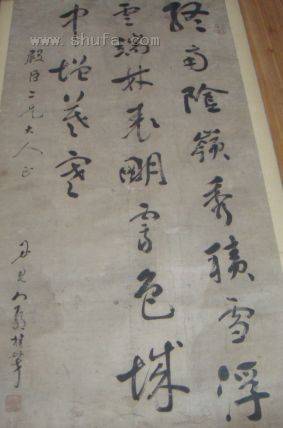 终南陰嶺秀積雪浮
雲端林表明霽色城
中增暮寒
二兄大人正
www.shufa.com